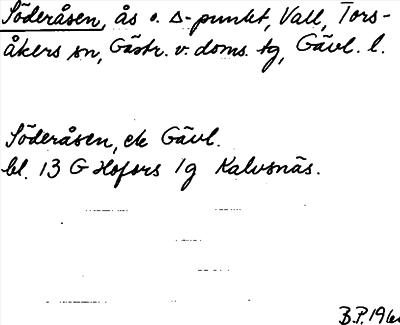 Söderåsen, ås o. Δ-punkt, Vall, Tors-
åkers sn, Gästr. v. doms. tg, Gävl. l.
Söderåsen, ek Gävl.
bl. 13 G Hofors 1g Kalvsnäs.
B.P. 196